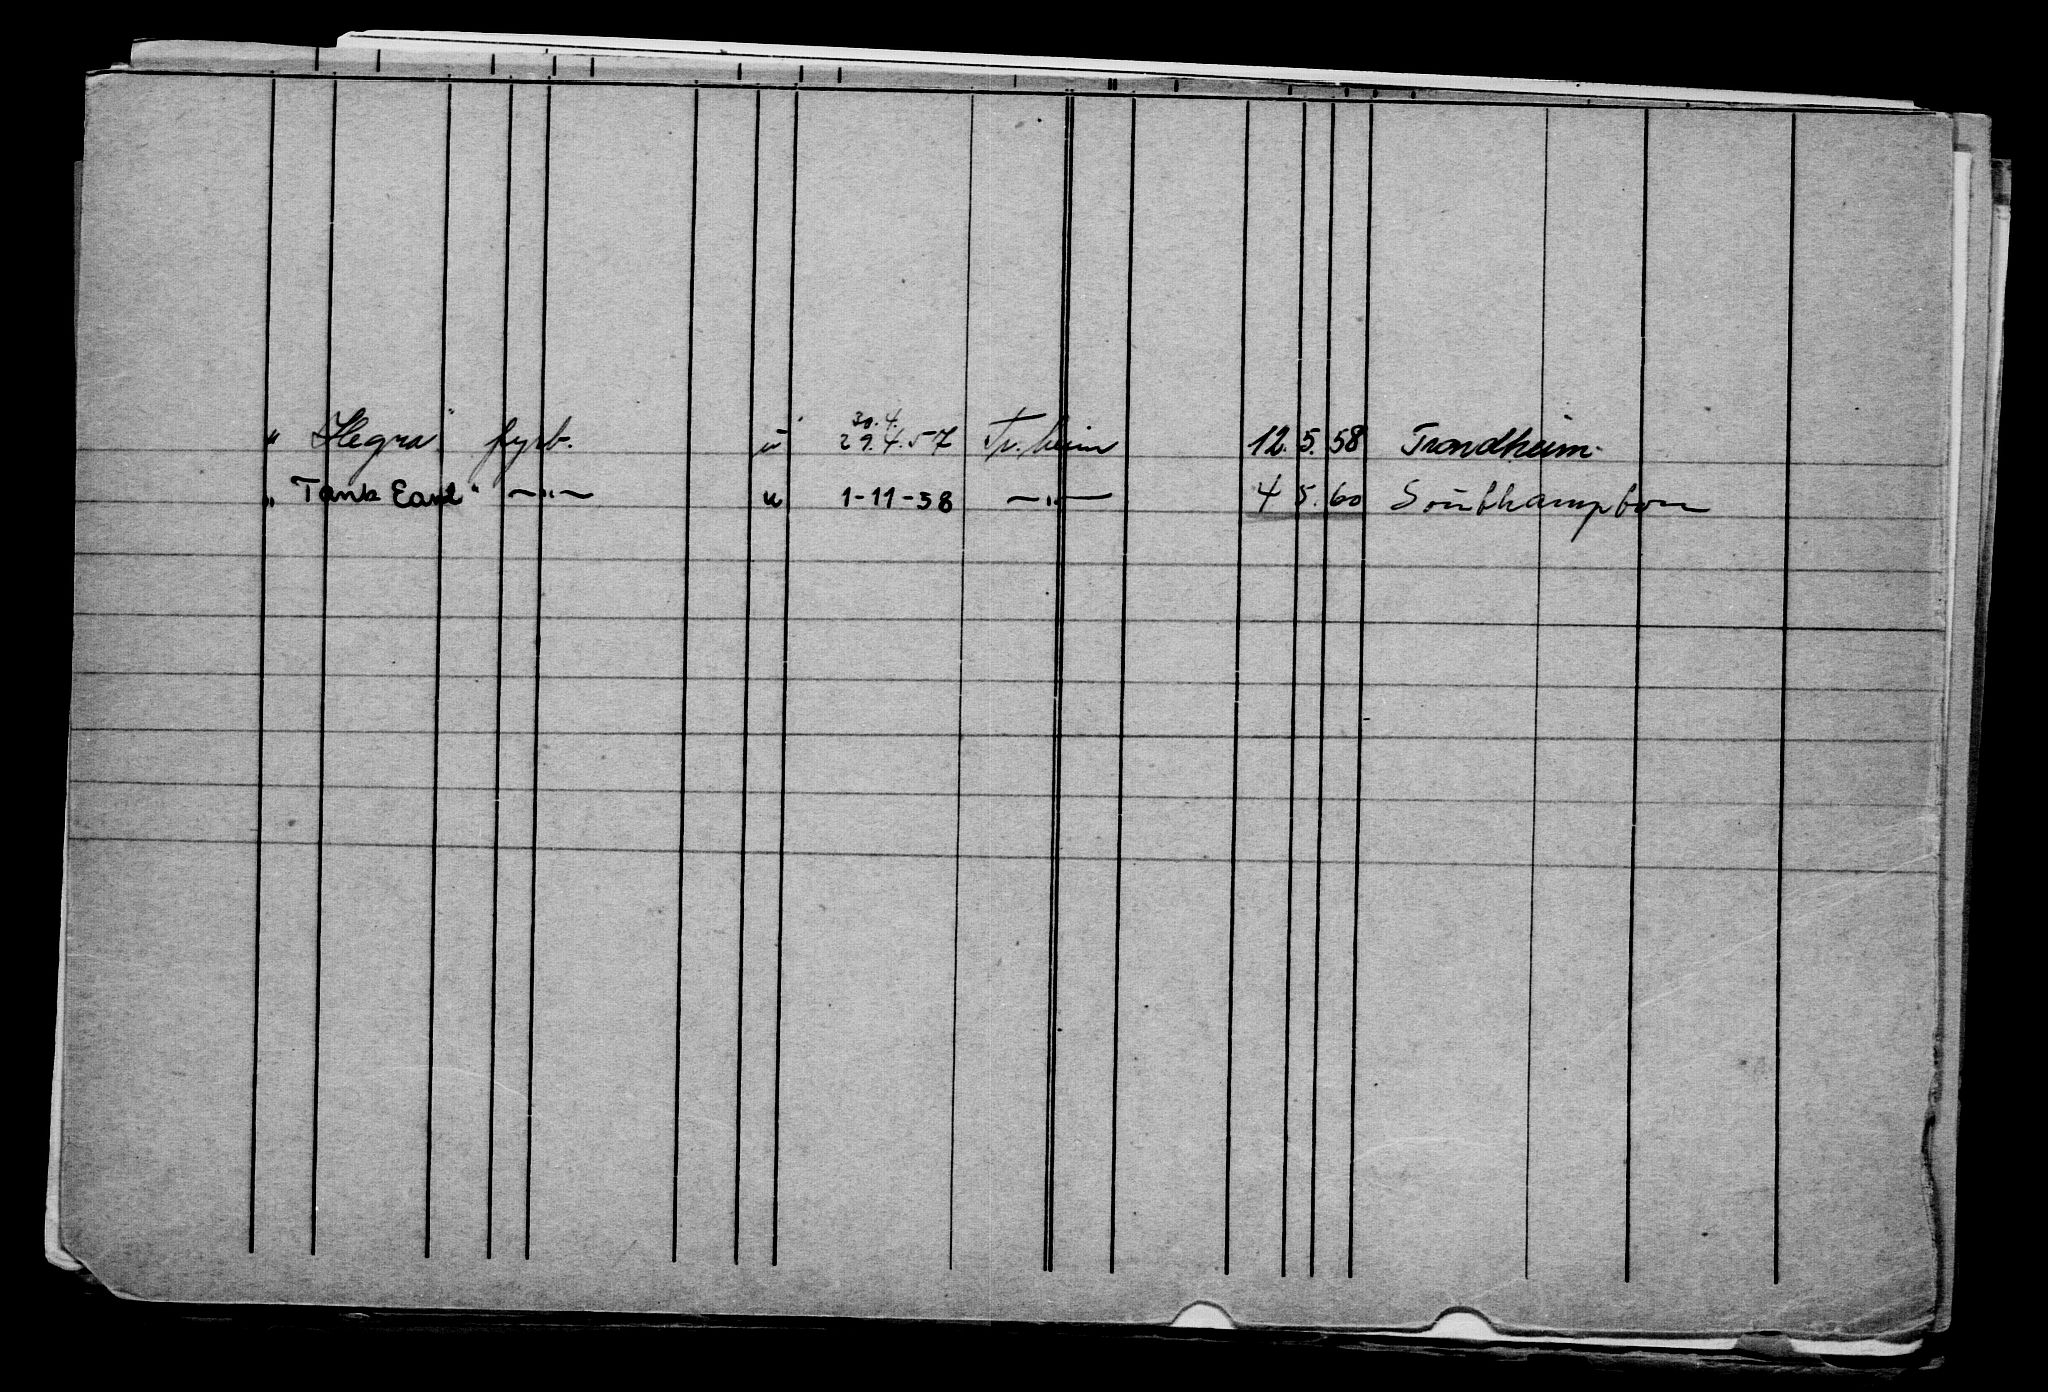 30.4.
" Hegra" fyrb. u 29.4.57 Tr.heim 12. 5. 58 Trondheim.
" Tank Earl" —"— u 1-11-58 —"— 4 5. 60 Southampton